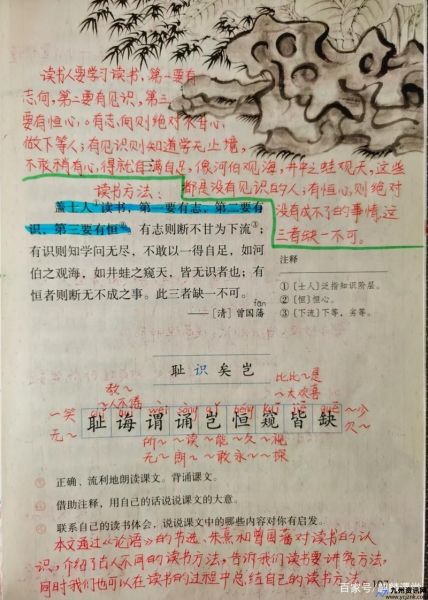 读书人要学习读书,第一要有
志向,第二要有见识,第三
要有恒心。有志向则绝对不甘心
做下等人;有见识则知道学无止境,
不敢稍有心得就自满自足,像河伯观海,井中之蛙观天,这些
都是没有见识的人;有恒心,则绝对
没有成不了的事情,这
三者缺一不可。
读书方法:
盖士人①读书,第一要有志,第二要有
识,第三要有恒②。有志则断不甘为下流③;
有识则知学问无尽,不敢以一得自足,如河
伯之观海,如井蛙之窥天,皆无识者也;有
恒者则断无不成之事。此三者缺一不可。
fān
——[清]曾国藩
注释
①〔士人〕泛指知识阶层。
②〔恒〕恒心。
③〔下流〕下等,劣等。
耻识矣岂
教~
~人不倦
比比~是
~大欢喜
耻诲谓诵岂恒窥皆缺
一笑
无~
~少
~乏
所~ ~读 ~能 ~久 ~视
无~ 朗~ ~敢 永~ ~探
正确、流利地朗读课文。背诵课文。
借助注释,用自己的话说说课文的大意。
联系自己的读书体会,说说课文中的哪些内容对你有启发。
本文通过《论语》的节选、朱熹和曾国藩对读书的认
识,介绍了古人不同的读书方法,告诉我们读书要讲究方法,
同时我们也可以在读书的过程中总结自己的读书方法。
107
百家号/
九州资讯网